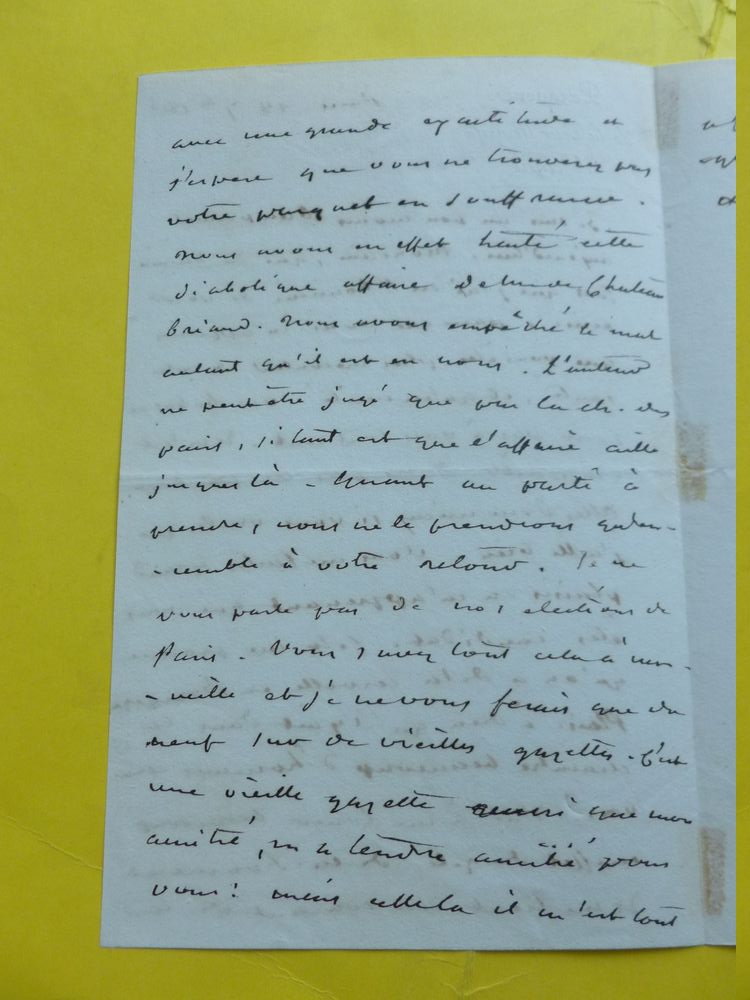 avec une grande exactitude et
j'espere que vous ne trouverez pas
votre paquet en souffrance.
nous avons en effet traité cette
diabolique affaire de Chateau
briand. nous avons empêché le mal
autant qu'il est en nous. L'auteur
ne peut être jugé que par la ch. des
pairs, si tant est que l'affaire aille
jusques là - Quant au parti à
prendre, nous ne le prendrons qu'en-
-semble à votre retour. Je ne
vous parle pas de nos élections de
Paris - Vous savez tout cela à mer-
-veille et je ne vous ferais que du
neuf sur de vieilles gazettes. C'est
une vieille gazette aussi que mon
amitié, ma tendre amitié pour
vous! mais celle là il m'est tout